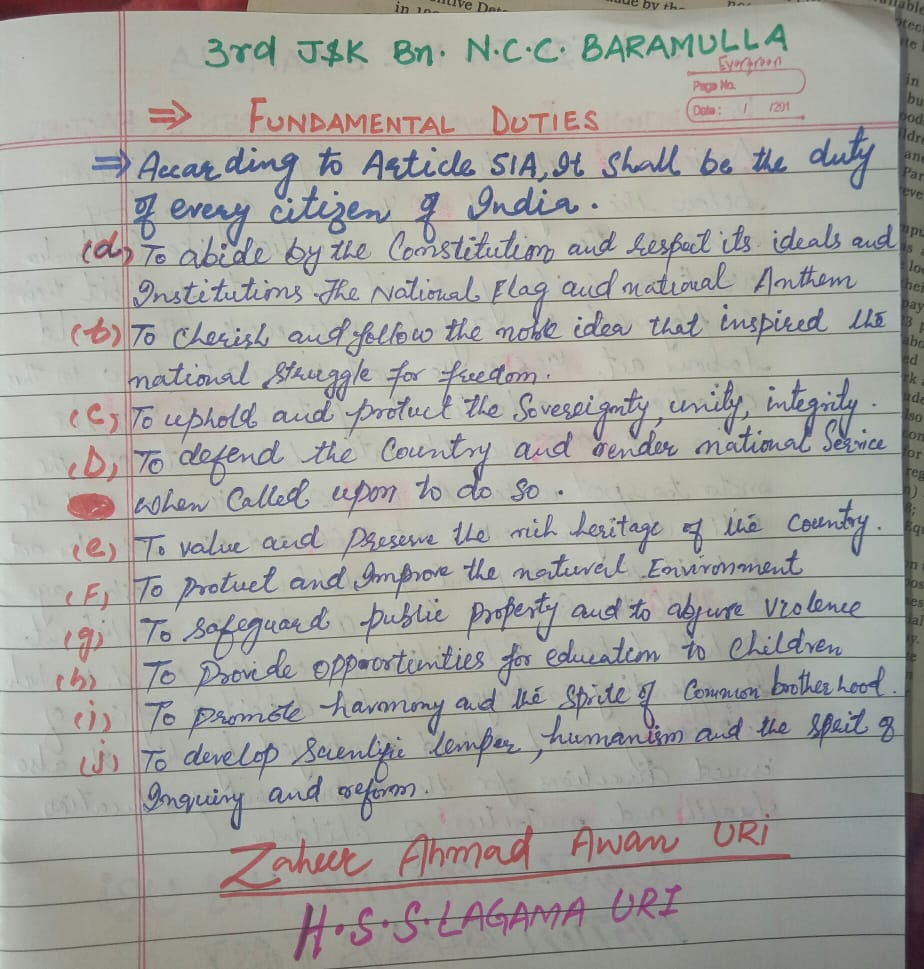 3rd J&K Bn. N.C.C. BARAMULLA
Evergreen
Page No.
Date: / /201
⇒ FUNDAMENTAL DUTIES
⇒ According to Article 51A, It shall be the duty
of every citizen of India.
(a) To abide by the Constitution and respect its ideals and
Institutions. The National Flag and national Anthem
(b) To Cherish and follow the noble idea that inspired the
national struggle for freedom.
(c) To uphold and protect the Sovereignty, unity, integrity.
(D) To defend the Country and render national Service
when Called upon to do so.
(e) To value and preserve the rich heritage of the country.
(F) To protect and Improve the natural Environment
(g) To safeguard public property and to abjure violence
(h) To Provide opportinities for education to children
(i) To promote harmony and the sprite of Common brotherhood.
(j) To develop Scientific temper, humanism and the speit of
Inquiry and reform.
Zaheer Ahmad Awan URi
H.S.S. LAGAMA URI